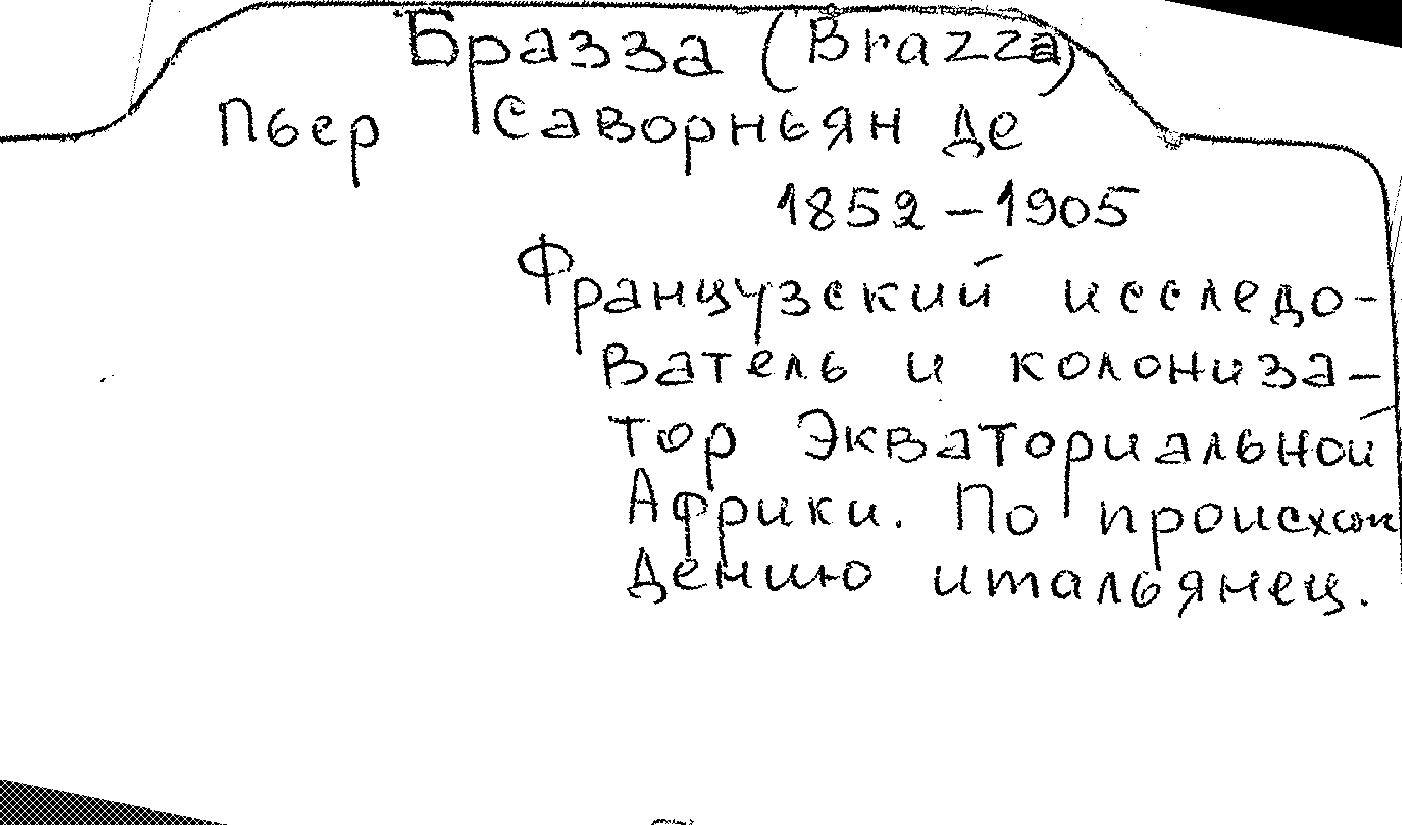 Бразза (Brazza)
Пьер Саворньян де
1852 – 1905
Французский исследо-
ватель и колониза-
тор Экваториальной
Африки. По происхож
дению итальянец.